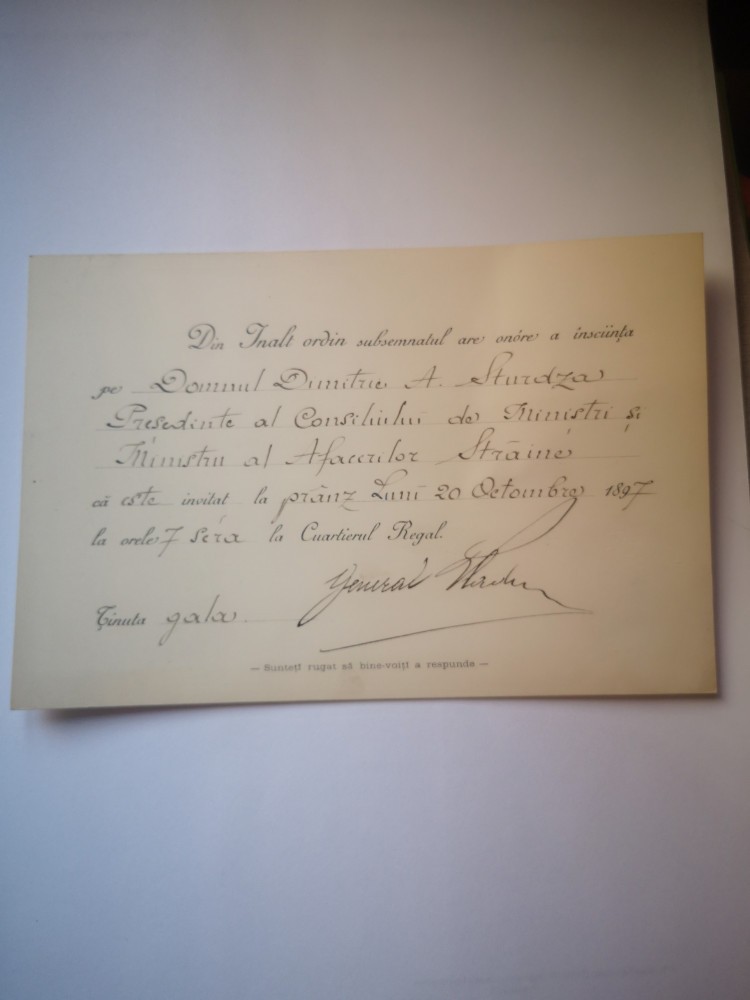 Din Inalt ordin subsemnatul are onóre a însciința
pe Domnul Dumitrie A. Sturdza
Presedinte al Consiliului de Ministri și
Ministru al Afacerilor Străine
că este invitat la prânz Luni 20 Octombre 1897
la orele 7 séra la Cuartierul Regal.
General
Ținuta gala.
— Sunteți rugat să bine-voiți a respunde —